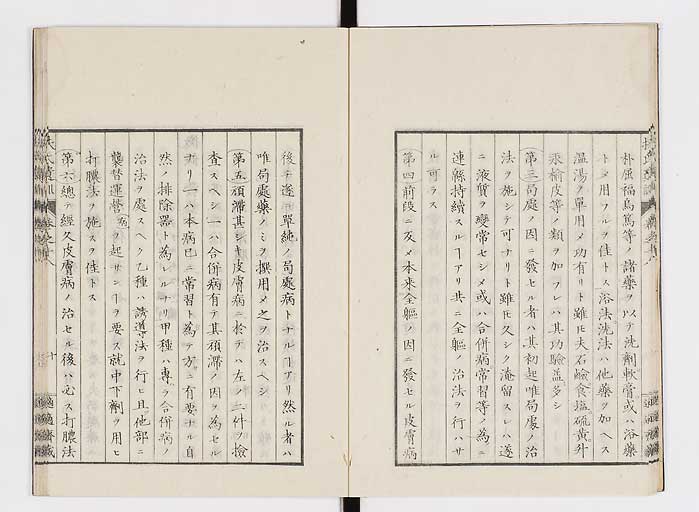 朴屈福烏篤等ノ諸藥ヲ以テ洗劑軟膏或ハ浴藥
トメ用フルヲ佳トス浴法洗法ハ他藥ヲ加ヘス
温湯ヲ單用メ功有リト雖𪜈夫石鹼食塩硫黄升
汞榆皮等ノ類ヲ加フレハ其功驗盖多シ
第三局處ノ因ニ發セル者ハ其初起唯局處ノ治
法ヲ施シテ可ナリト雖𪜈久シク淹留スレハ遂
ニ液質ヲ變常セシメ或ハ合併病常習等ノ為ニ
連緜持續スルヿアリ共ニ全軀ノ治法ヲ行ハサ
ル可ラス
第四前段ニ反メ本來全軀ノ因ニ發セル皮膚病
後チ遂ニ單純ノ局處病トナルヿアリ然ル者ハ
唯局處藥ノミヲ撰用メ之ヲ治スヘシ
第五頑滯甚シキ皮膚病ニ於テハ左ノ二件ヲ撿
査スヘシ一ハ合併病有テ其頑滯ノ因ヲ為セル
ナリ一ハ本病已ニ常習ト為テ方ニ有要ナル自
然ノ排除器ト為レルナリ甲種ハ專ラ合併病ノ
治法ヲ處スヘク乙種ハ誘導法ヲ行ヒ且他部ニ
襲督運營病ヲ起サンヿヲ要ス就中下劑ヲ用ヒ
打膿法ヲ施スヲ佳トス
第六總テ經久皮膚病ノ治セル後ハ必ス打膿法